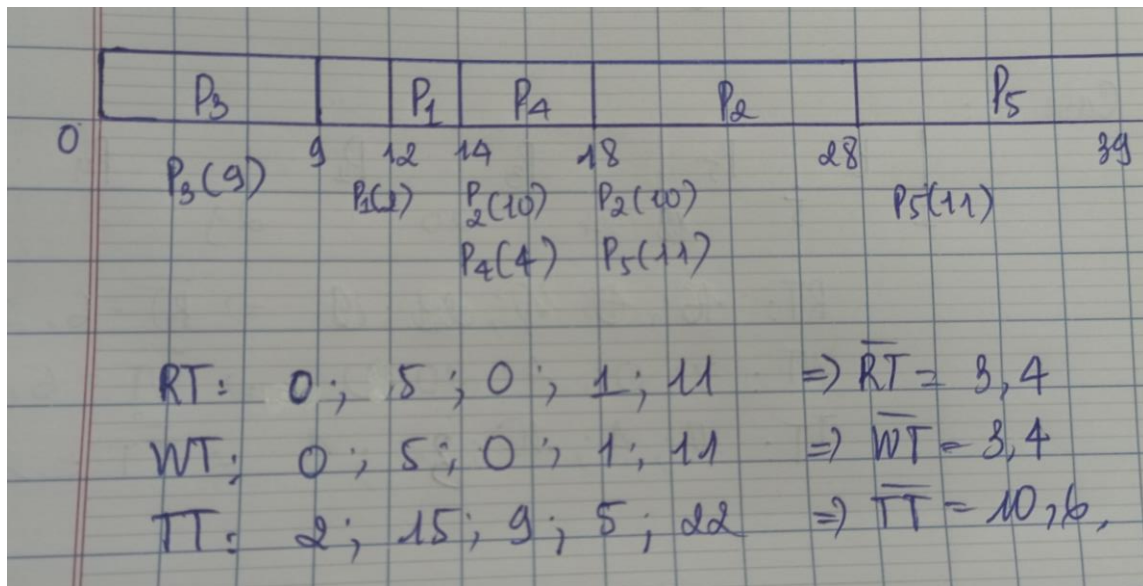 P3 P1 P4 P2 P5
0 9 12 14 18 28 39
P3(9) P1(2) P2(10) P2(10) P5(11)
P4(4) P5(11)
RT: 0; 5; 0; 1; 11 => RT = 3,4
WT: 0; 5; 0; 1; 11 => WT = 3,4
TT: 2; 15; 9; 5; 22 => TT = 10,6,